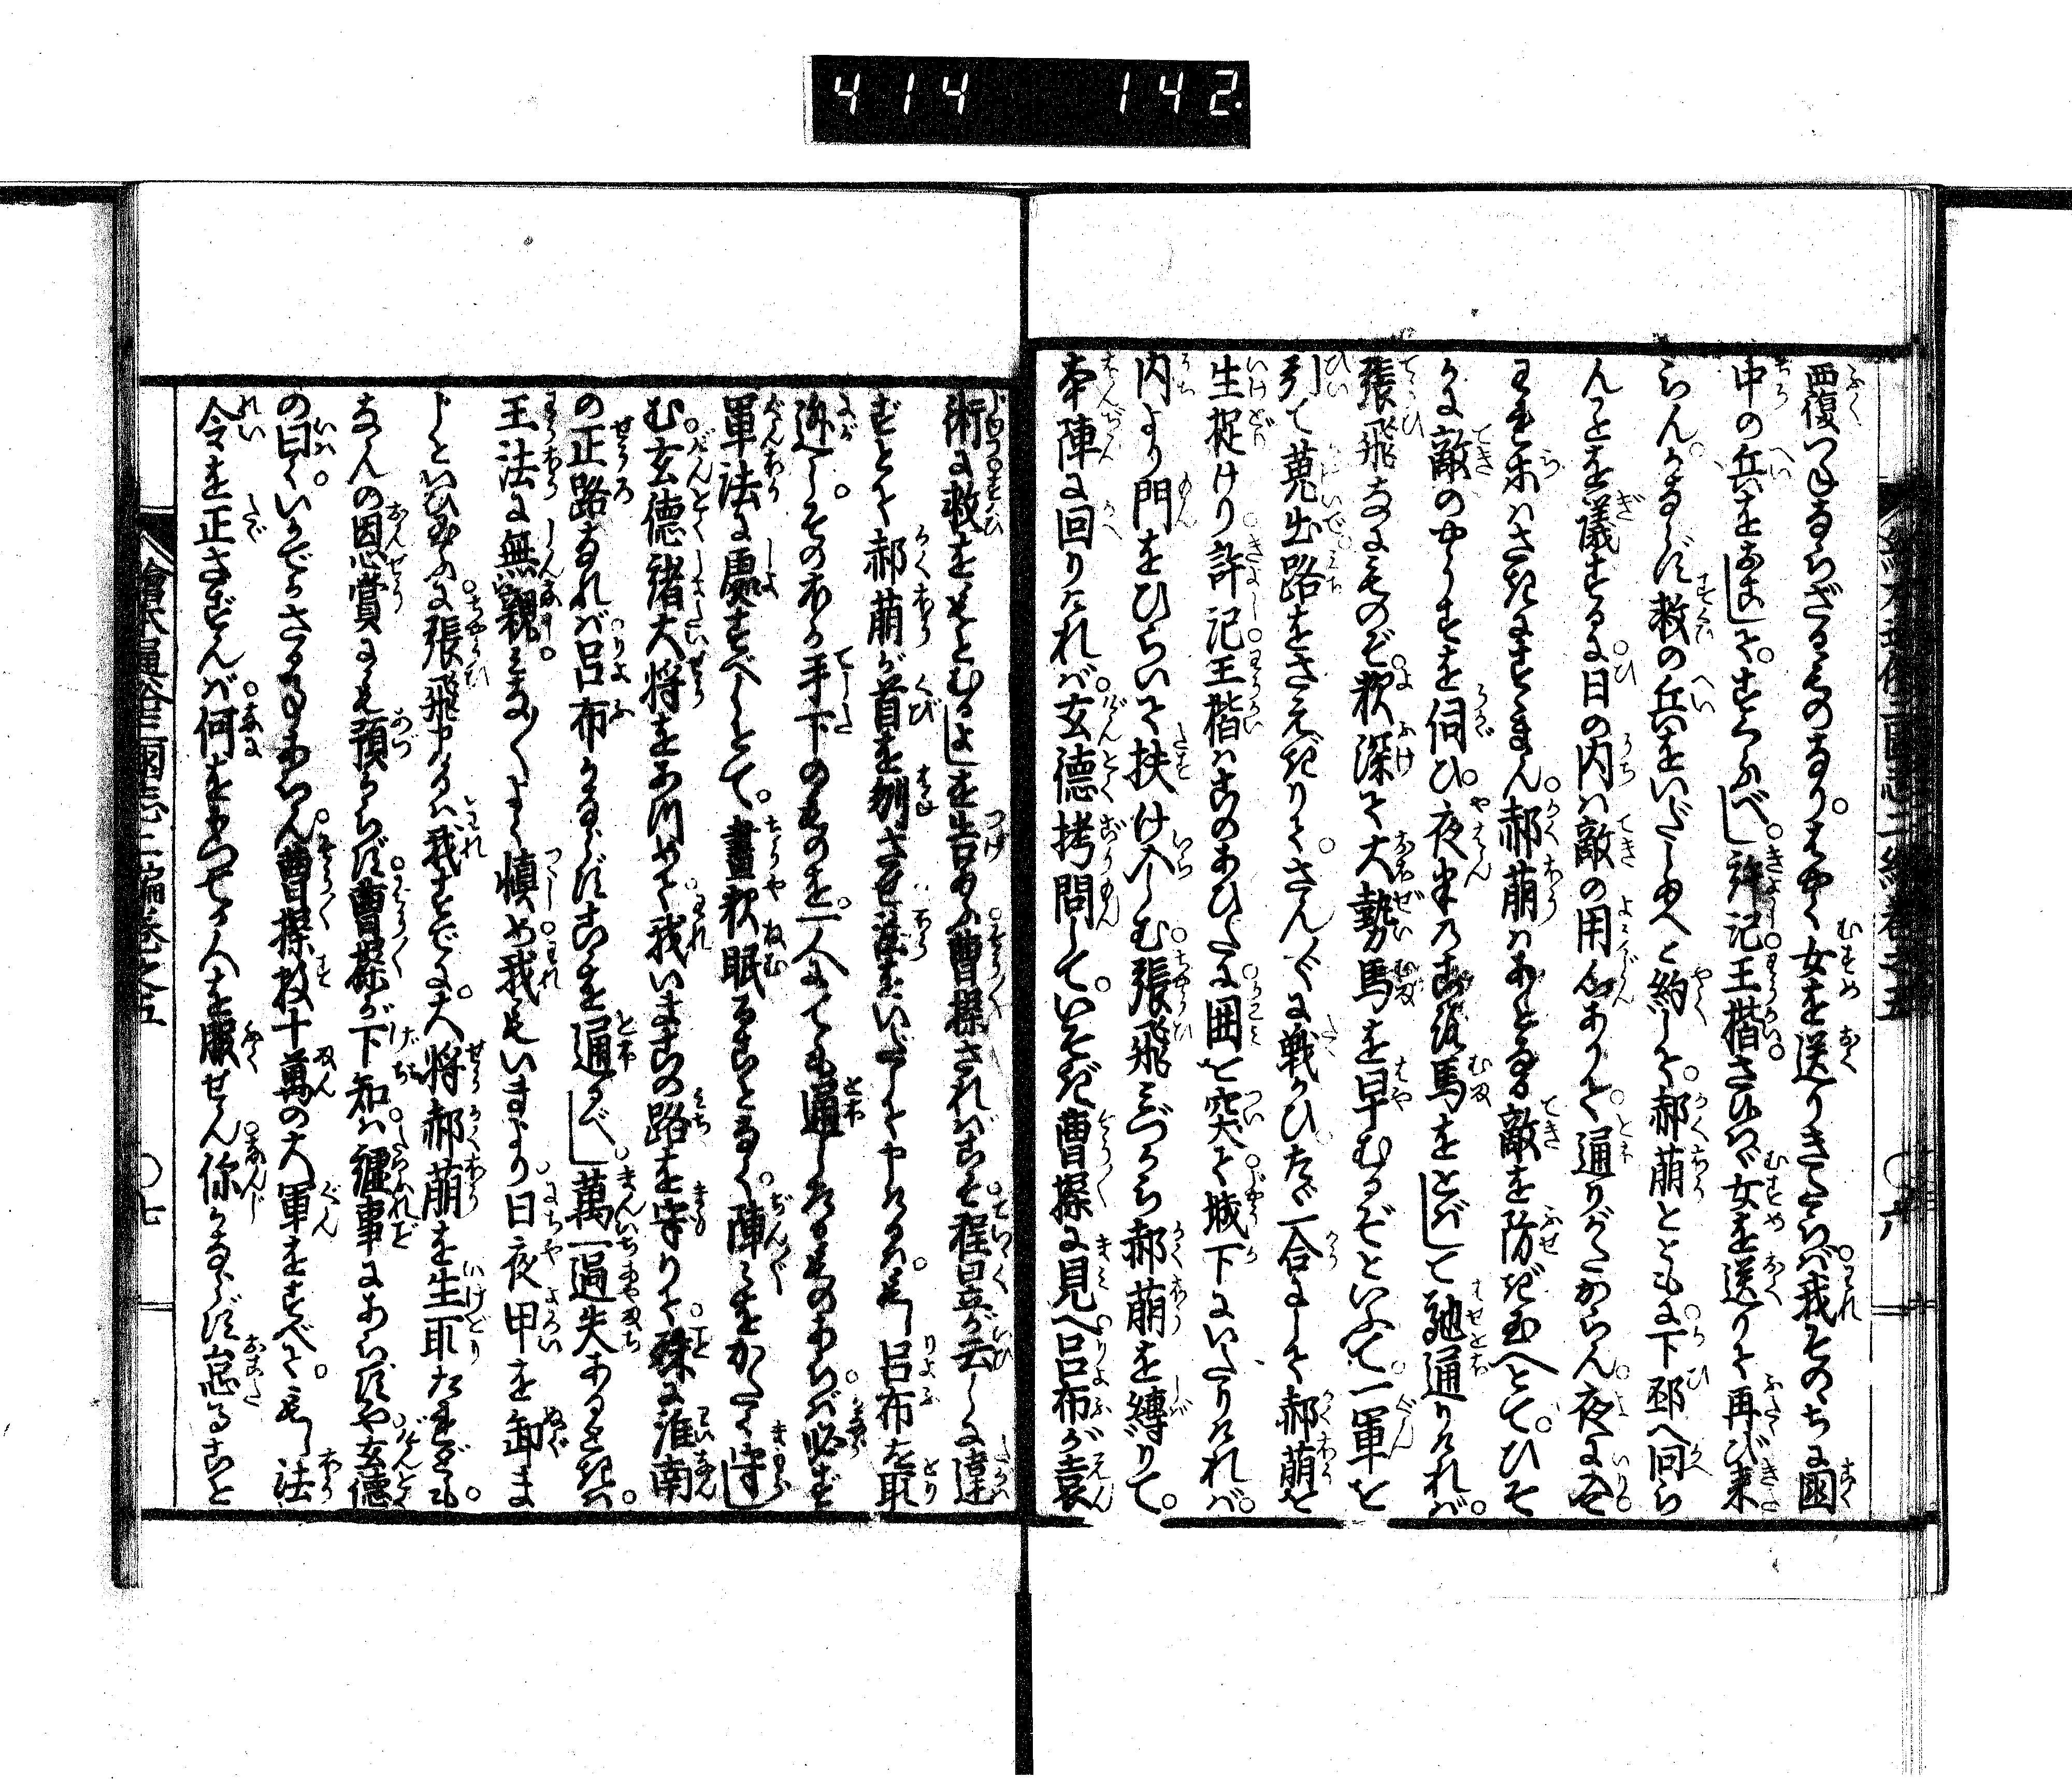 414 142
覆つねならざるものなり。はやく女を送りきたらば。我そのゝち国
中の兵をおこして。すくふべし。許記。王楷。さらば女を送りて再び来
らん。かならず救の兵をいだし給へと約して。郝萌とともに。下邳へ回ら
んことを議するに。日の内は敵の用心ありて。通りがたからん。夜に入て
われ等はさきにすゝまん。郝萌はあとなる敵を防ぎ給へとて。ひそ
かに敵のやうすを伺ひ。夜半のころ馬をとばして馳通りければ。
張飛なにものぞ。夜深て大勢馬を早むるぞといふて。一軍を
引て蒐出。路をさえぎりて。さんざんに戦かひ。たゞ一合にして郝萌を
生捉けり。許記。王楷はこのあひだに。囲を突て。城下にいたりければ。
内より門をひらいて扶け入しむ。張飛みづから郝萌を縛りて。
本陣に回りければ。玄徳拷問して。いそぎ曹操に見へ。呂布が袁
術に救をもとむるよしを告給ふ。曹操さればこそ。程昱が云しに違
ずとて郝萌が首を刎させ。法をいだして申けるは。もし呂布を取
逃し。そのほか手下のものを。一人にても通したるものあらば。必ず
軍法に処すべしとて。昼夜眠ることなく。陣々をかたく守らし
む。玄徳諸大将をあつめて。我いまこの路を守りて。殊に淮南
の正路なれば。呂布かならずこゝを通るべし。萬一過失あるときは。
王法に無親。みなみなよく慎め。我もいまより。日夜甲を卸ま
じといひ給ふに。張飛申けるは。我すでに。大将郝萌を生取たれども。
なんの恩賞にも預からず。曹操が下知は。戯事にあらずや。玄徳
の曰く。いかでかさる事あらん。曹操数十萬の大軍をすべて。もし法
令を正さずんば。何をもつてか人を服せん。你かならず怠ること
繪本通俗三國志二編巻之五 〇七
〇六